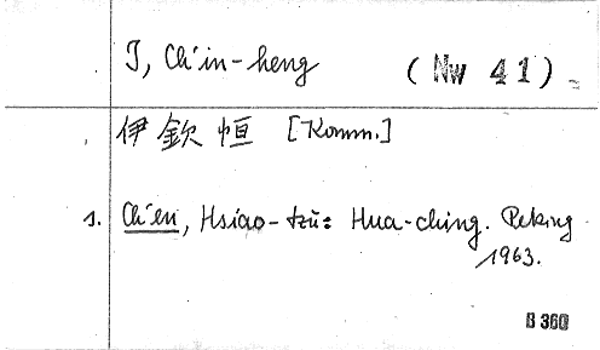 I, Ch'in-heng (Nw 41)
伊欽恒 [Komm.]
1. Ch'en, Hsiao-tzŭ: Hua-ching. Peking
1963.
B 360